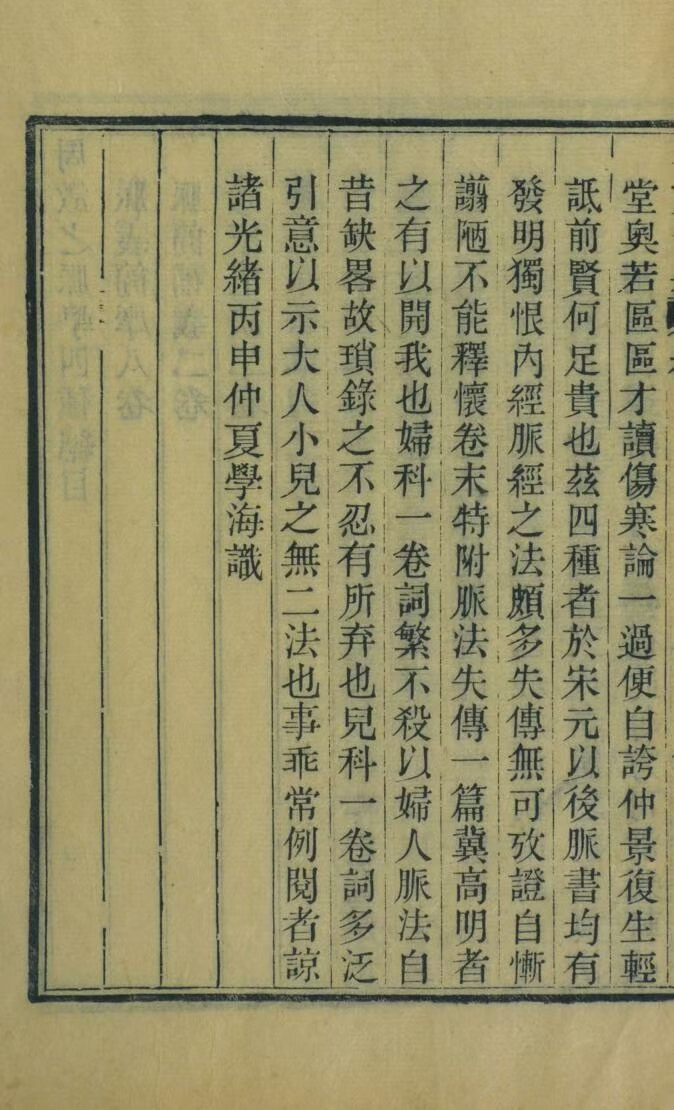 堂奧若區區才讀傷寒論一過便自誇仲景復生輕
詆前賢何足貴也茲四種者於宋元以後脈書均有
發明獨恨內經脈經之法頗多失傳無可攷證自慚
譾陋不能釋懷卷末特附脈法失傳一篇冀高明者
之有以開我也婦科一卷詞繁不殺以婦人脈法自
昔缺畧故瑣錄之不忍有所弃也兒科一卷詞多泛
引意以示大人小兒之無二法也事乖常例閱者諒
諸光緒丙申仲夏學海識